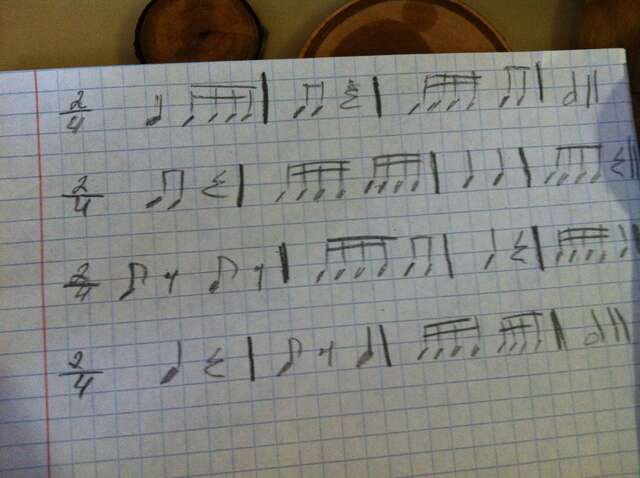 2/4 ♩ ♬♬ | ♫ 𝄽 | ♬♬ ♫ | 𝅗𝅥 ‖
2/4 ♫ 𝄽 | ♬♬ ♬♬ | ♩ ♩ | ♬♬ 𝄽 ‖
2/4 ♪ 𝄾 ♪ 𝄾 | ♬♬ ♫ | ♩ 𝄽 | ♬♬ ♩ ‖
2/4 ♩ 𝄽 | ♪ 𝄾 ♩ | ♬♬ ♬♬ | 𝅗𝅥 ‖